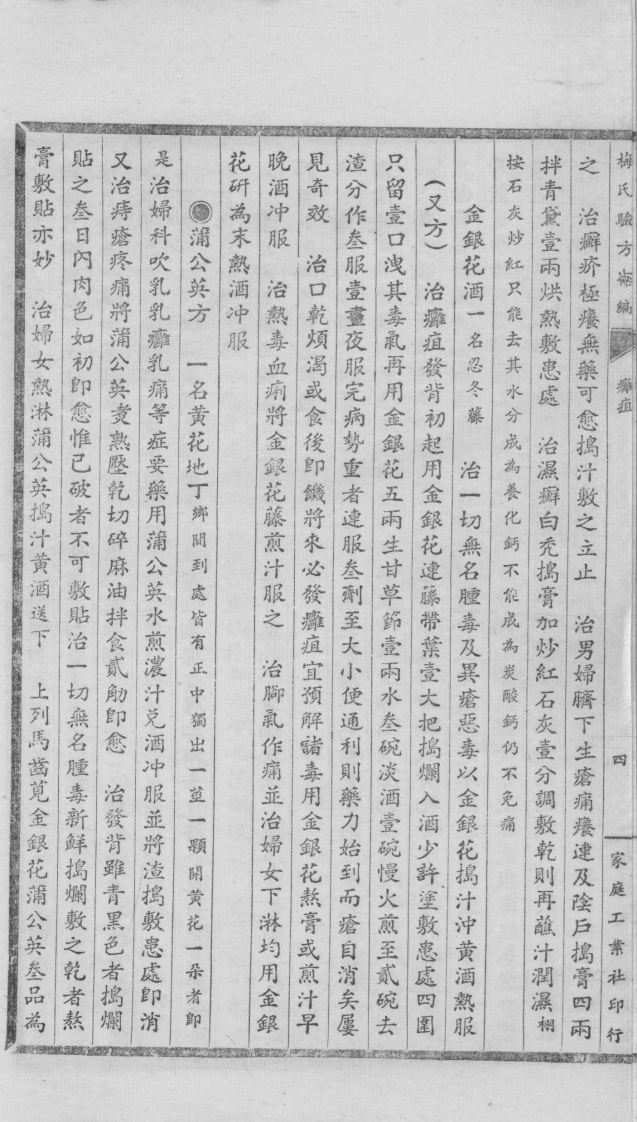 梅氏驗方新編　癰疽　四　家庭工業社印行
之　治癬疥極癢無藥可愈搗汁敷之立止　治男婦臍下生瘡痛癢連及陰戶搗膏四兩
拌青黛壹兩烘熱敷患處　治濕癬白禿搗膏加炒紅石灰壹分調敷乾則再蘸汁潤濕栩
按石灰炒紅只能去其水分成為養化鈣不能成為炭酸鈣仍不免痛
金銀花酒一名忍冬藤　治一切無名腫毒及異瘡惡毒以金銀花搗汁沖黃酒熱服
(又方)　治癰疽發背初起用金銀花連藤帶葉壹大把搗爛入酒少許塗敷患處四圍
只留壹口洩其毒氣再用金銀花五兩生甘草節壹兩水叁碗淡酒壹碗慢火煎至貳碗去
渣分作叁服壹晝夜服完病勢重者連服叁劑至大小便通利則藥力始到而瘡自消矣屢
見奇效　治口乾煩渴或食後卽饑將來必發癰疽宜預解諸毒用金銀花熬膏或煎汁早
晚酒冲服　治熱毒血痢將金銀花藤煎汁服之　治脚氣作痛並治婦女下淋均用金銀
花研為末熱酒冲服
蒲公英方　一名黃花地丁鄉間到處皆有正中獨出一莖一顆開黃花一朵者卽
是治婦科吹乳乳癰乳痛等症要藥用蒲公英水煎濃汁兌酒冲服並將渣搗敷患處卽消
又治痔瘡疼痛將蒲公英煑熟壓乾切碎麻油拌食貳觔卽愈　治發背雖青黑色者搗爛
貼之叁日內肉色如初卽愈惟已破者不可敷貼治一切無名腫毒新鮮搗爛敷之乾者熬
膏敷貼亦妙　治婦女熱淋蒲公英搗汁黃酒送下　上列馬齒莧金銀花蒲公英叁品為